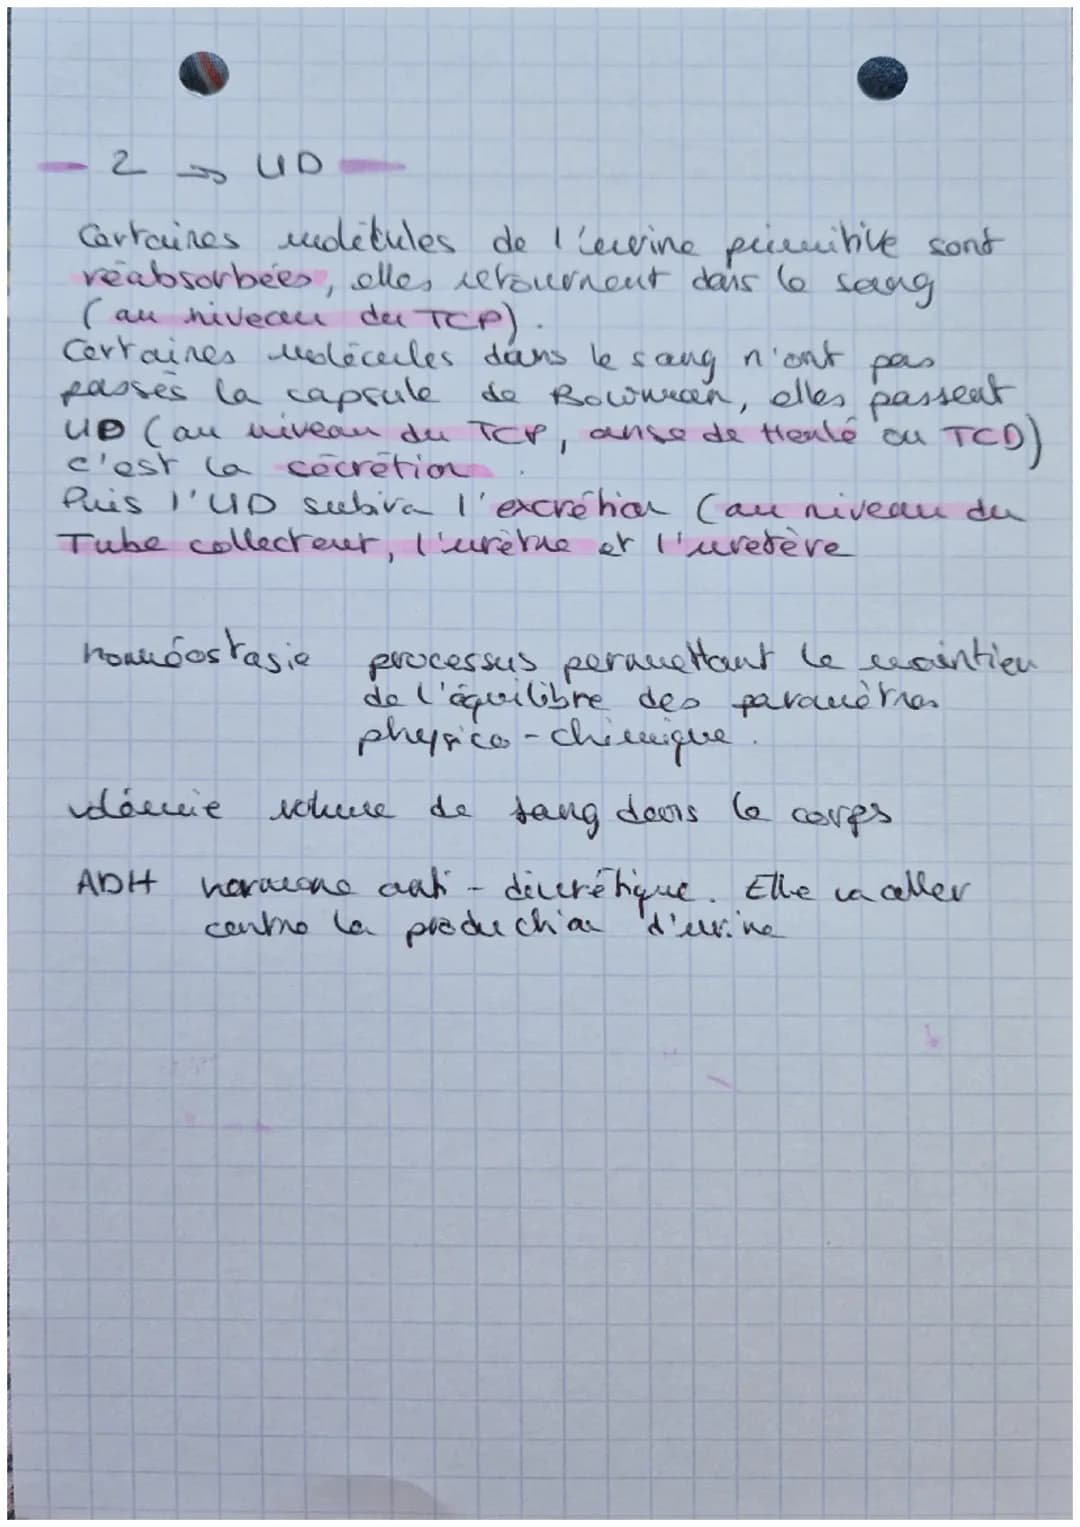 2 → UD
Certaines molécules de l'urine primitive sont
réabsorbées, elles retournent dans le sang
(au niveau du TCP).
Certaines molécules dans le sang n'ont pas
passés la capsule de Bowman, elles passent
UD (au niveau du TCP, anse de Henlé ou TCD)
c'est la sécrétion.
Puis l'UD subira l'excrétion (au niveau du
Tube collecteur, l'urètre et l'uretère
homéostasie processus permettant le maintien
de l'équilibre des paramètres
physico-chimique.
volémie volume de sang dans le corps
ADH hormone anti-diurétique. Elle va aller
contre la production d'urine